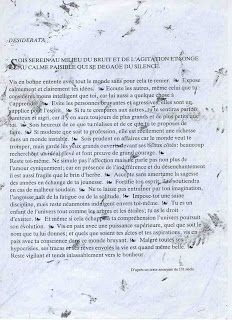 DESIDERATA
SOIS SEREIN AU MILIEU DU BRUIT ET DE L'AGITATION ET SONGE
AU CALME PAISIBLE QUI SE DEGAGE DU SILENCE.
Vis en bonne entente avec tout le monde sans pour cela te renier Expose
calmement et clairement tes idées. Ecoute les autres, même ceux que tu
considères moins intelligent que toi, car eux aussi ont quelque chose à
t'apprendre. Evite les personnes bruyantes et agressives elles sont un
supplice pour l'esprit. Si tu te compares aux autres, tu te sentiras
ou aigri, car il y en aura toujours de plus grands et de plus petits que
toi. Sois heureux de ce que tu réalises et de ce que tu te proposes de
faire. Si modeste que soit ta profession, elle est réellement une richesse
dans un monde instable. Sois prudent en affaires car le monde veut te
tromper, mais garde les yeux grands ouverts devant ses beaux côtés: beaucoup
recherchent un idéal et font preuve de grand courage.
Reste toi-même. Ne simule pas l'affection mais ne parle pas non plus de
l'amour cyniquement; car en présence de l'indifférence et du désenchantement
il est aussi fragile que le brin d'herbe. Accepte sans amertume la sagesse
des années en échange de ta jeunesse. Fortifie ton esprit,
cas de malheur soudain. Ne te laisse pas entraîner par ton imagination,
l'angoisse naît de la fatigue ou de la solitude. Impose-toi une saine
discipline, mais reste néanmoins indulgent envers toi-même. Tu es un
enfant de l'univers tout comme les arbres et les étoiles; tu as le droit
d'exister. Et même si cela échappe à ta compréhension l'univers poursuit
son évolution. Vis en paix avec une puissance supérieure, quel que soit le
nom que tu lui donnes; et quels que soient tes actes et tes aspirations, vis en
paix avec ta conscience dans ce monde bruyant. Malgré toutes ses
hypocrisies, ses tracas et ses rêves envolés la vie est quand même belle.
Reste vigilant et tends inlassablement vers le bonheur.
D'après un texte anonyme du